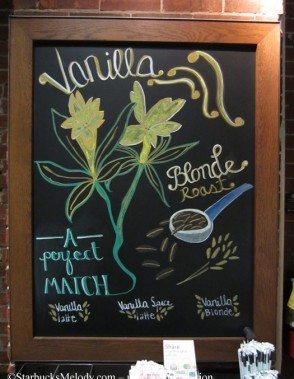 Vanilla
Blonde
Roast
A
perfect
MATCH
Vanilla
latte
Vanilla Sauce
latte
Vanilla
Blonde
©StarbucksMelody.com